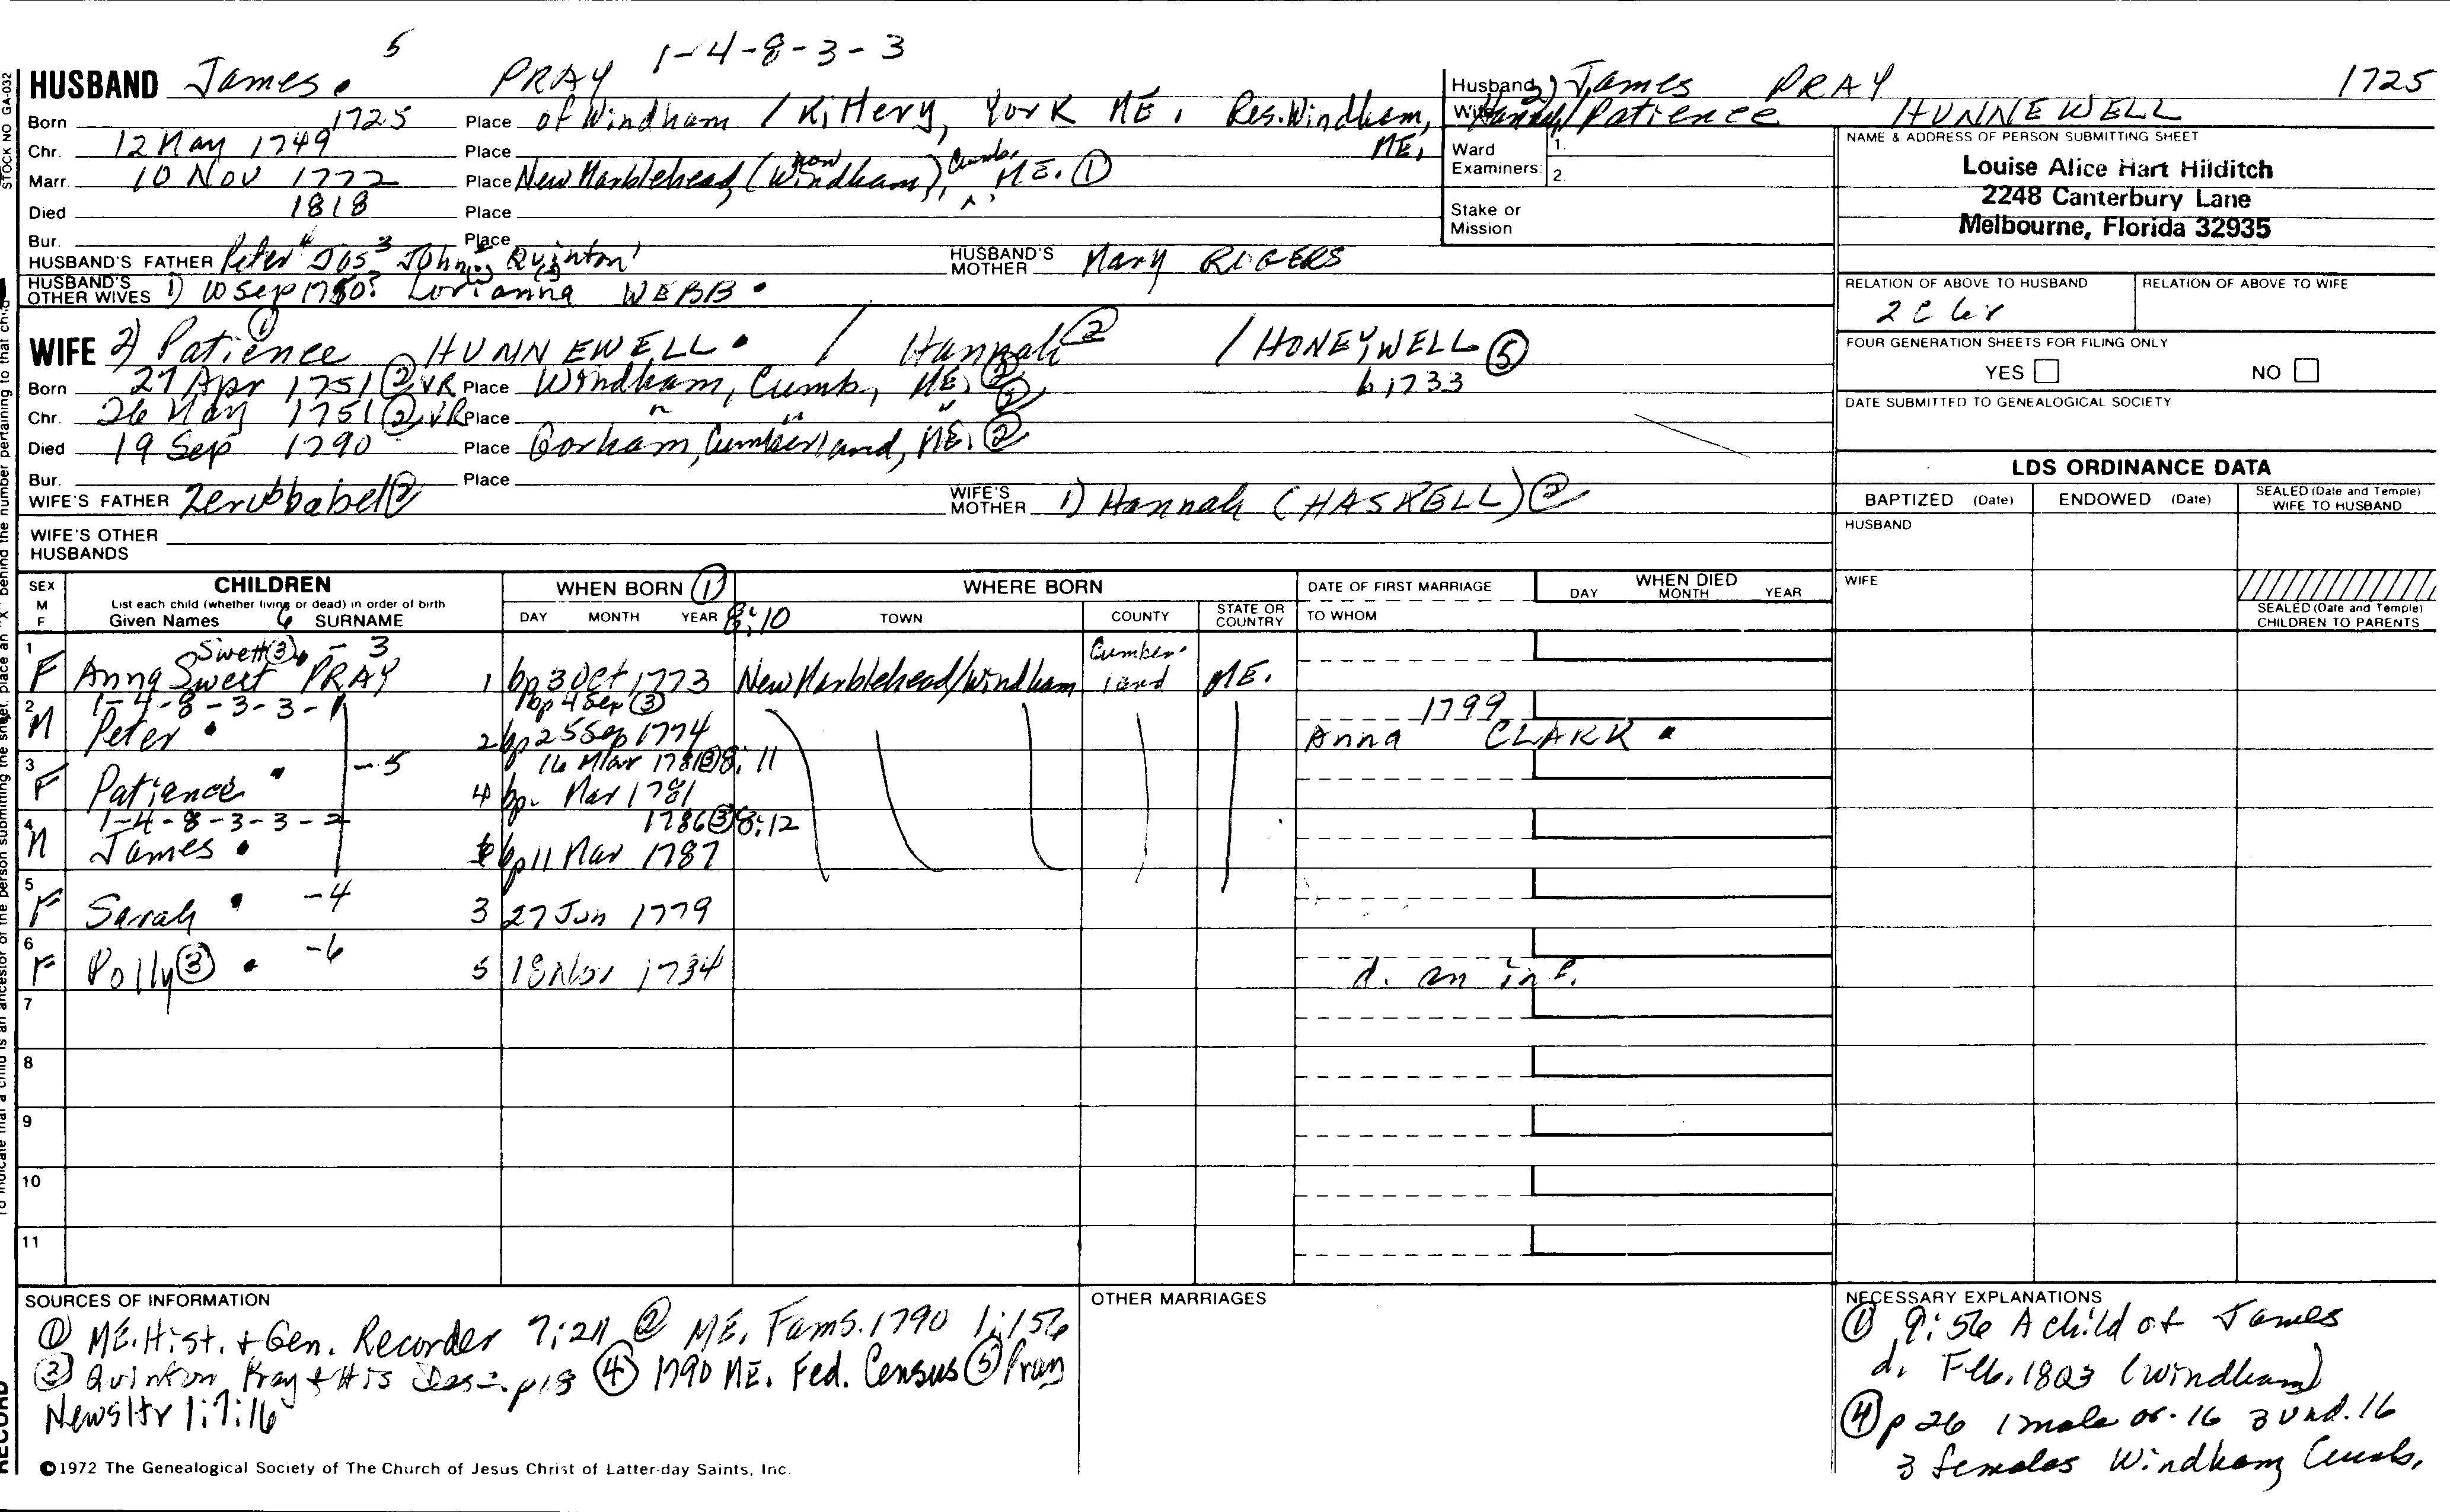 5
1-4-8-3-3
HUSBAND James. PRAY
Born 1725 Place of Windham / Kittery, York ME. Res. Windham, ME,
Chr. 12 May 1749 Place
Marr. 10 Nov 1772 Place New Marblehead, (now Windham), Cumb. ME. ①
Died 1818 Place
Bur. Place
HUSBAND'S FATHER Peter⁴ Jos³ John² Quinton¹ HUSBAND'S MOTHER Mary ROGERS
HUSBAND'S OTHER WIVES 1) 10 Sep 1750? Lorianna WEBB.
Husband 2) James PRAY 1725
Wife Hannah/Patience HUNNEWELL
Ward
Examiners: 1.
2.
Stake or
Mission
NAME & ADDRESS OF PERSON SUBMITTING SHEET
Louise Alice Hart Hilditch
2248 Canterbury Lane
Melbourne, Florida 32935
RELATION OF ABOVE TO HUSBAND RELATION OF ABOVE TO WIFE
2 C 6r
FOUR GENERATION SHEETS FOR FILING ONLY
YES NO
DATE SUBMITTED TO GENEALOGICAL SOCIETY
WIFE 2) Patience ① HUNNEWELL. / Hannah ② / HONEYWELL ⑤
Born 27 Apr 1751 ② VR Place Windham, Cumb, ME. ② b 1733
Chr. 26 May 1751 ② VR Place " " " ②
Died 19 Sep 1790 Place Gorham, Cumberland, ME. ②
Bur. Place
WIFE'S FATHER Zerubbabel ② WIFE'S MOTHER 1) Hannah (HASKELL) ②
WIFE'S OTHER
HUSBANDS
LDS ORDINANCE DATA
BAPTIZED (Date) ENDOWED (Date) SEALED (Date and Temple) WIFE TO HUSBAND
HUSBAND
WIFE
SEALED (Date and Temple) CHILDREN TO PARENTS
SEX M F CHILDREN List each child (whether living or dead) in order of birth Given Names 6 SURNAME
WHEN BORN ① DAY MONTH YEAR 8:10
WHERE BORN TOWN COUNTY STATE OR COUNTRY
DATE OF FIRST MARRIAGE TO WHOM
WHEN DIED DAY MONTH YEAR
Swett (3) - 3 Cumber-
1 F Anna Swett PRAY 1 bp 3 Oct 1773 New Marblehead/Windham land ME.
1-4-8-3-3-1 bp 4 Sep ③ 1799
2 M Peter . 2 bp 25 Sep 1774 Anna CLARK .
- 5 16 Mar 1781 ③ 8:11
3 F Patience . 4 bp. Mar 1781
1-4-8-3-3-2 1786 ③ 8:12
4 M James . 6 bp 11 Mar 1787
5 F Sarah . -4 3 27 Jun 1779
6 F Polly ③ . -6 5 18 Nov 1734 d. an inf.
7
8
9
10
11
SOURCES OF INFORMATION
① ME. Hist. + Gen. Recorder 7:211 ② ME. Fams. 1790 1:156
③ Quinton Pray + His Desc. p18 ④ 1790 ME. Fed. Census ⑤ Pray
Newsltr 1:7:16
OTHER MARRIAGES
NECESSARY EXPLANATIONS
① 9:56 A child of James
d. Feb. 1803 (Windham)
④ p 26 1 male ov. 16 3 und. 16
3 females Windham, Cumb.
©1972 The Genealogical Society of The Church of Jesus Christ of Latter-day Saints, Inc.
STOCK NO GA-032
RECORD